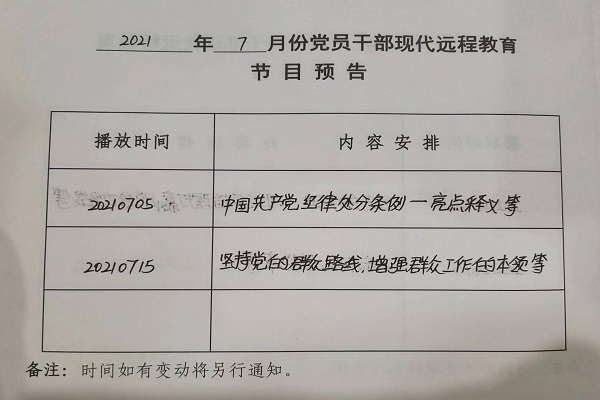 2021 年 7 月份党员干部现代远程教育
节目预告
播放时间 内容安排
20210705 中国共产党纪律处分条例一亮点释义等
20210715 坚持党的群众路线,增强群众工作的本领等
备注：时间如有变动将另行通知。